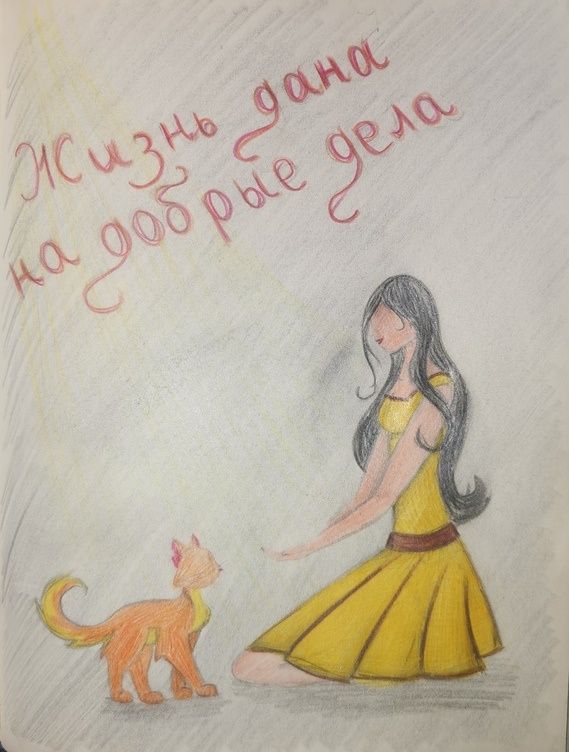 Жизнь дана
на добрые дела